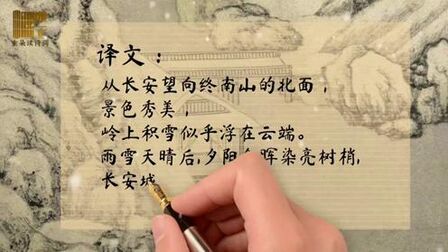 译文：
从长安望向终南山的北面，
景色秀美，
岭上积雪似乎浮在云端。
雨雪天晴后,夕阳 晖染亮树梢,
长安城